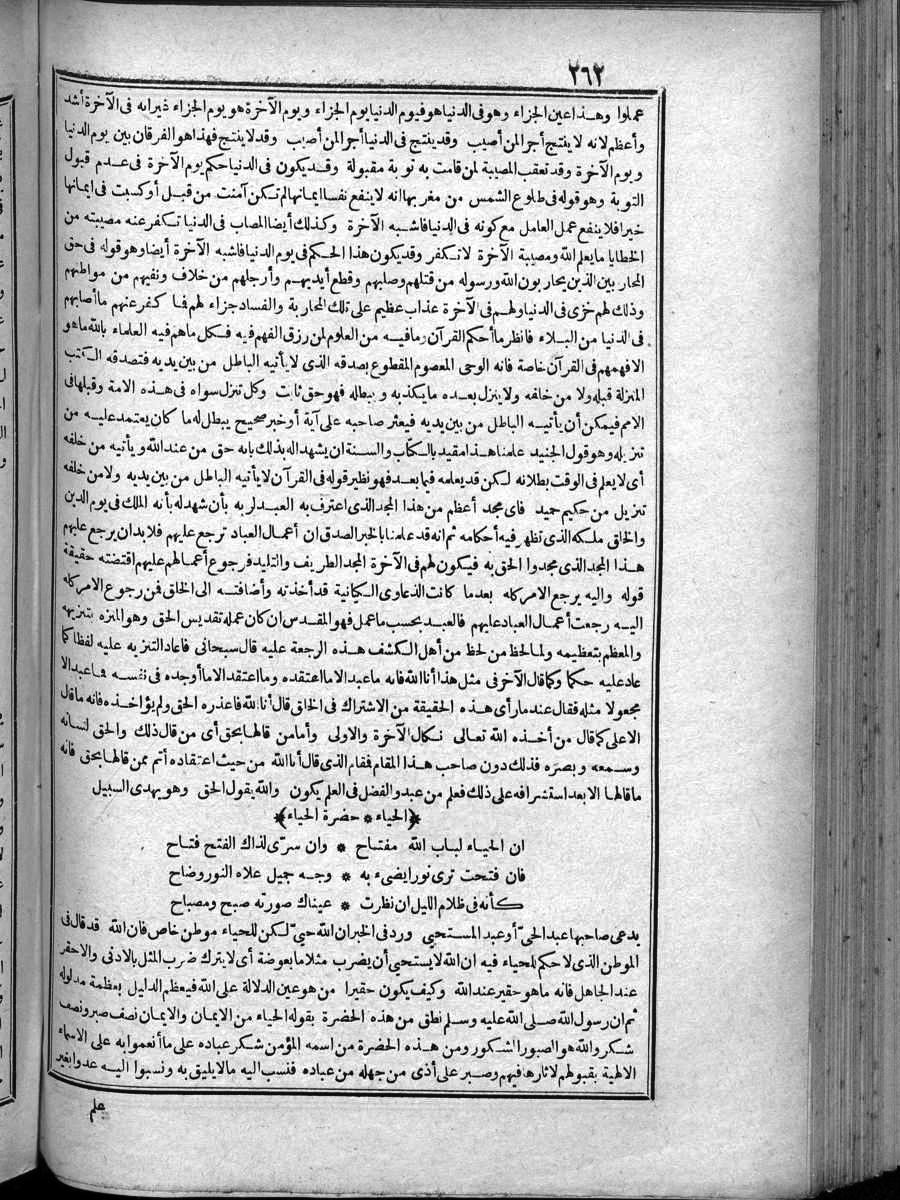 ٢٦٢
عملوا وهذا عين الجزاء وهو فى الدنيا هو فيوم الدنيا يوم الجزاء ويوم الآخرة هو يوم الجزاء غير انه فى الآخرة أشد
وأعظم لانه لا ينتج أجرا لمن أصيب وقد ينتج فى الدنيا أجرا لمن أصيب وقد لا ينتج فهذا هو الفرقان بين يوم الدنيا
ويوم الآخرة وقد تعقب المصيبة لمن قامت به توبة مقبولة وقد يكون فى الدنيا حكم يوم الآخرة فى عدم قبول
التوبة وهو قوله فى طلوع الشمس من مغربها انه لا ينفع نفسا ايمانها لم تكن آمنت من قبل أو كسبت فى ايمانها
خيرا فلا ينفع عمل العامل مع كونه فى الدنيا فاشبه الآخرة وكذلك أيضا المصاب فى الدنيا تكفر عنه مصيبته من
الخطايا ما يعلم الله ومصيبة الآخرة لا تكفر وقد يكون هذا الحكم فى يوم الدنيا فاشبه الآخرة أيضا وهو قوله فى حق
المحاربين الذين يحاربون الله ورسوله من قتلهم وصلبهم وقطع أيديهم وأرجلهم من خلاف ونفيهم من مواطنهم
وذلك لهم خزى فى الدنيا ولهم فى الآخرة عذاب عظيم على تلك المحاربة والفساد جزاء لهم فما كفر عنهم ما أصابهم
فى الدنيا من البلاء فانظر ما أحكم القرآن وما فيه من العلوم لمن رزق الفهم فيه فكل ما هم فيه العلماء بالله ما هو
الا فهمهم فى القرآن خاصة فانه الوحى المعصوم المقطوع بصدقه الذى لا يأتيه الباطل من بين يديه فتصدقه الكتب
المنزلة قبله ولا من خلفه ولا ينزل بعده ما يكذبه ويبطله فهو حق ثابت وكل تنزل سواه فى هذه الامة وقبلها فى
الامم فيمكن أن يأتيه الباطل من بين يديه فيعثر صاحبه على آية أو خبر صحيح يبطل له ما كان يعتمد عليه من
تنزيله وهو قول الجنيد علمنا هذا مقيد بالكتاب والسنة ان يشهد اله بذلك بانه حق من عند الله ويأتيه من خلفه
أى لا يعلم فى الوقت بطلانه لكن قد يعلمه فيما بعد فهو نظير قوله فى القرآن لا يأتيه الباطل من بين يديه ولا من خلفه
تنزيل من حكيم حميد فاى مجد أعظم من هذا المجد الذى اعترف به العبد لربه بأن شهد له بأنه الملك فى يوم الدين
والخلق ملكه الذى تظهر فيه أحكامه ثم انه قد علمنا بالخبر الصدق ان أعمال العباد ترجع عليهم فلا بد ان يرجع عليهم
هذا المجد الذى مجدوا الحق به فيكون لهم فى الآخرة المجد الطريف والتليد فرجوع أعمالهم عليهم اقتضته حقيقة
قوله واليه يرجع الامر كله بعدما كانت الدعاوى الكيانية قد أخذته وأضافته الى الخلق فمن رجوع الامر كله
اليه رجعت أعمال العباد عليهم فالعبد بحسب ما عمل فهو المقدس ان كان عمله تقديس الحق وهو المنزه بتنزيهه
والمعظم بتعظيمه ولما لحظ من لحظ من أهل الكشف هذه الرجعة عليه قال سبحانى فاعاد التنزيه عليه لفظا كما
عاد عليه حكما وكما قال الآخر فى مثل هذا أنا الله فانه ما عبد الا ما اعتقده وما اعتقد الا ما أوجده فى نفسه فما عبد الا
مجعولا مثله فقال عند ما رأى هذه الحقيقة من الاشتراك فى الخلق قال أنا الله فاعذره الحق ولم يؤاخذه فانه ما قال
الا على كما قال من أخذه الله تعالى نكال الآخرة والاولى وأما من قالها بحق أى من قال ذلك والحق لسانه
وسمعه وبصره فذلك دون صاحب هذا المقام فمقام الذى قال أنا الله من حيث اعتقاده أتم ممن قالها بحق فانه
ما قالها الا بعد استشرافه على ذلك فعلم من عبد والفضل فى العلم يكون والله يقول الحق وهو يهدى السبيل
﴿الحياء * حضرة الحياء﴾
ان الحياء لباب الله مفتاح * وان سرى لذاك الفتح فتاح
فان فتحت ترى نورا يضىء به * وجه جميل علاه النور وضاح
كأنه فى ظلام الليل ان نظرت * عيناك صورته صبح ومصباح
يدعى صاحبها عبد الحى أو عبد المستحيى ورد فى الخبر ان الله حيى لكن للحياء موطن خاص فان الله قد قال فى
الموطن الذى لا حكم للحياء فيه ان الله لا يستحيى أن يضرب مثلا ما بعوضة أى لا يترك ضرب المثل بالادنى والاحقر
عند الجاهل فانه ما هو حقير عند الله وكيف يكون حقيرا من هو عين الدلالة على الله فيعظم الدليل بعظمة مدلوله
ثم ان رسول الله صلى الله عليه وسلم نطق من هذه الحضرة بقوله الحياء من الايمان والايمان نصف صبر ونصف
شكر والله هو الصبور الشكور ومن هذه الحضرة من اسمه المؤمن شكر عباده على ما أنعموا به على الاسماء
الالهية بقبولهم لاثارها فيهم وصبر على أذى من جهله من عباده فنسب اليه ما لا يليق به ونسبوا اليه عدوا بغير
علم